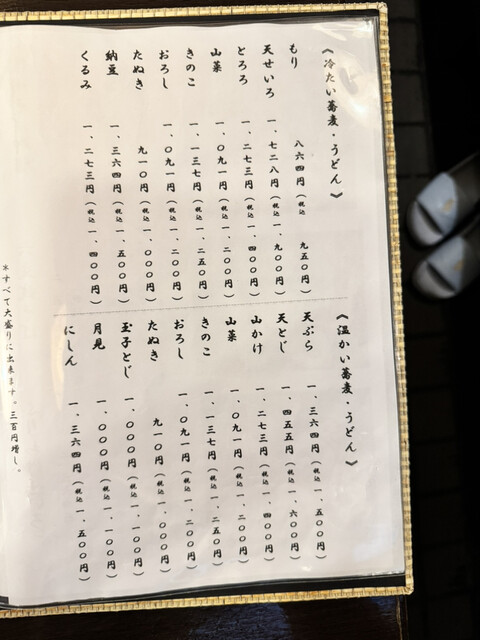 《冷たい蕎麦・うどん》
もり 八六四円（税込 九五〇円）
天せいろ 一、七二八円（税込 一、九〇〇円）
とろろ 一、二七三円（税込 一、四〇〇円）
山菜 一、〇九一円（税込 一、二〇〇円）
きのこ 一、一三七円（税込 一、二五〇円）
おろし 一、〇九一円（税込 一、二〇〇円）
たぬき 九一〇円（税込 一、〇〇〇円）
納豆 一、三六四円（税込 一、五〇〇円）
くるみ 一、二七三円（税込 一、四〇〇円）
《温かい蕎麦・うどん》
天ぷら 一、三六四円（税込 一、五〇〇円）
天とじ 一、四五五円（税込 一、六〇〇円）
山かけ 一、二七三円（税込 一、四〇〇円）
山菜 一、〇九一円（税込 一、二〇〇円）
きのこ 一、一三七円（税込 一、二五〇円）
おろし 一、〇九一円（税込 一、二〇〇円）
たぬき 九一〇円（税込 一、〇〇〇円）
玉子とじ 一、〇〇〇円（税込 一、一〇〇円）
月見 一、〇〇〇円（税込 一、一〇〇円）
にしん 一、三六四円（税込 一、五〇〇円）
＊すべて大盛りに出来ます。三百円増し。